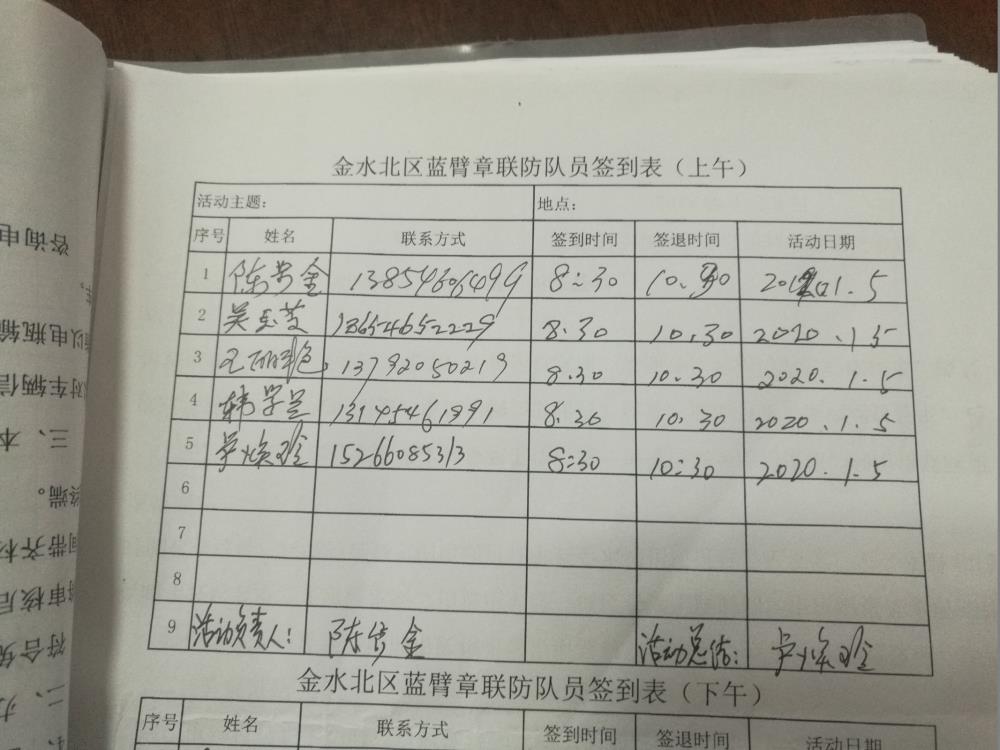 金水北区蓝臂章联防队员签到表（上午）
活动主题： 地点：
序号 姓名 联系方式 签到时间 签退时间 活动日期
1 陈 金 13854606499 8:30 10.30 1.5
2 吴玉芝 13654652229 8.30 10.30 2020.1.5
3 王丽艳 13792050219 8.30 10.30 2020.1.5
4 韩学兰 8.30 10.30 2020.1.5
5 15266085313 8:30 10:30 2020.1.5
6
7
8
9 活动负责人： 陈 金 活动总结：
金水北区蓝臂章联防队员签到表（下午）
序号 姓名 联系方式 签到时间 签退时间 活动日期
咨询电
以电瓶输
对车辆信
三、本
终端。
间带齐材
审核后
符合免
二、